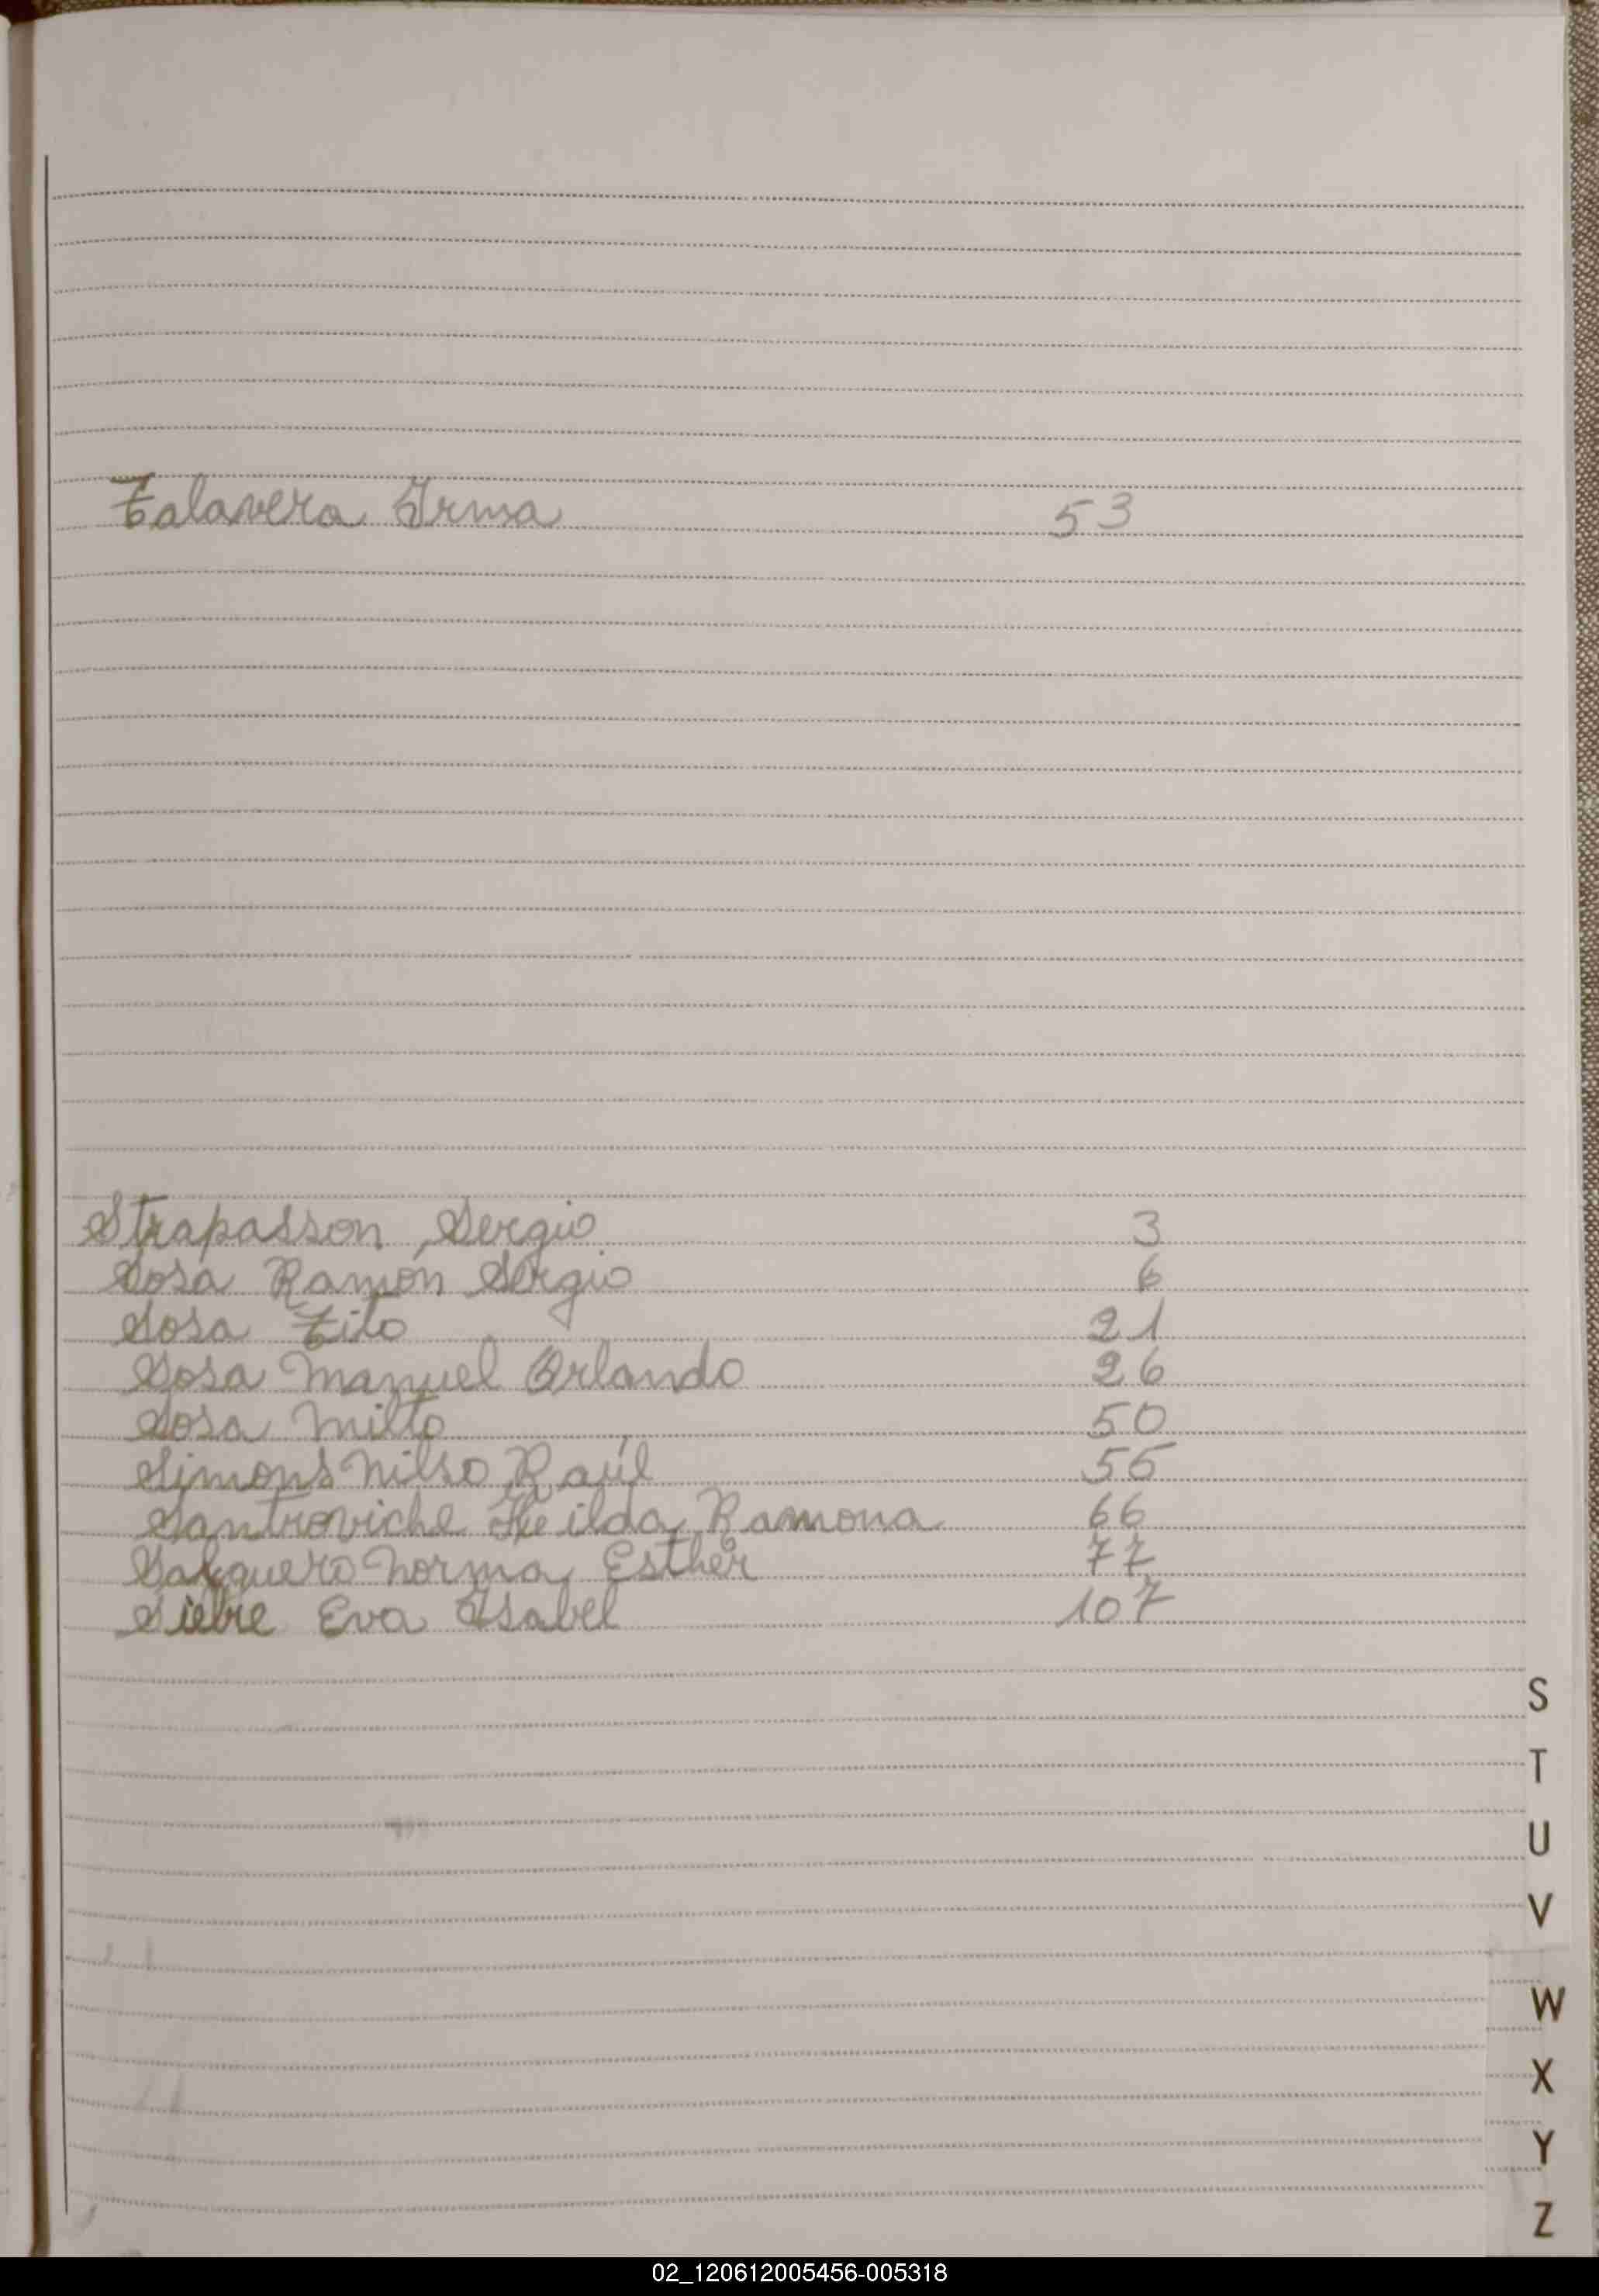 Talavera Irma 53
Strapasson, Sergio 3
Sosa Ramón Sergio 6
Sosa Tito 21
Sosa Manuel Orlando 26
Sosa Milto 50
Simons Nilso Raúl 55
Santroviche Ramona 66
Salguero Norma Esther 77
Siebre Eva Isabel 107
S
T
U
V
W
X
Y
Z
02_120612005456-005318